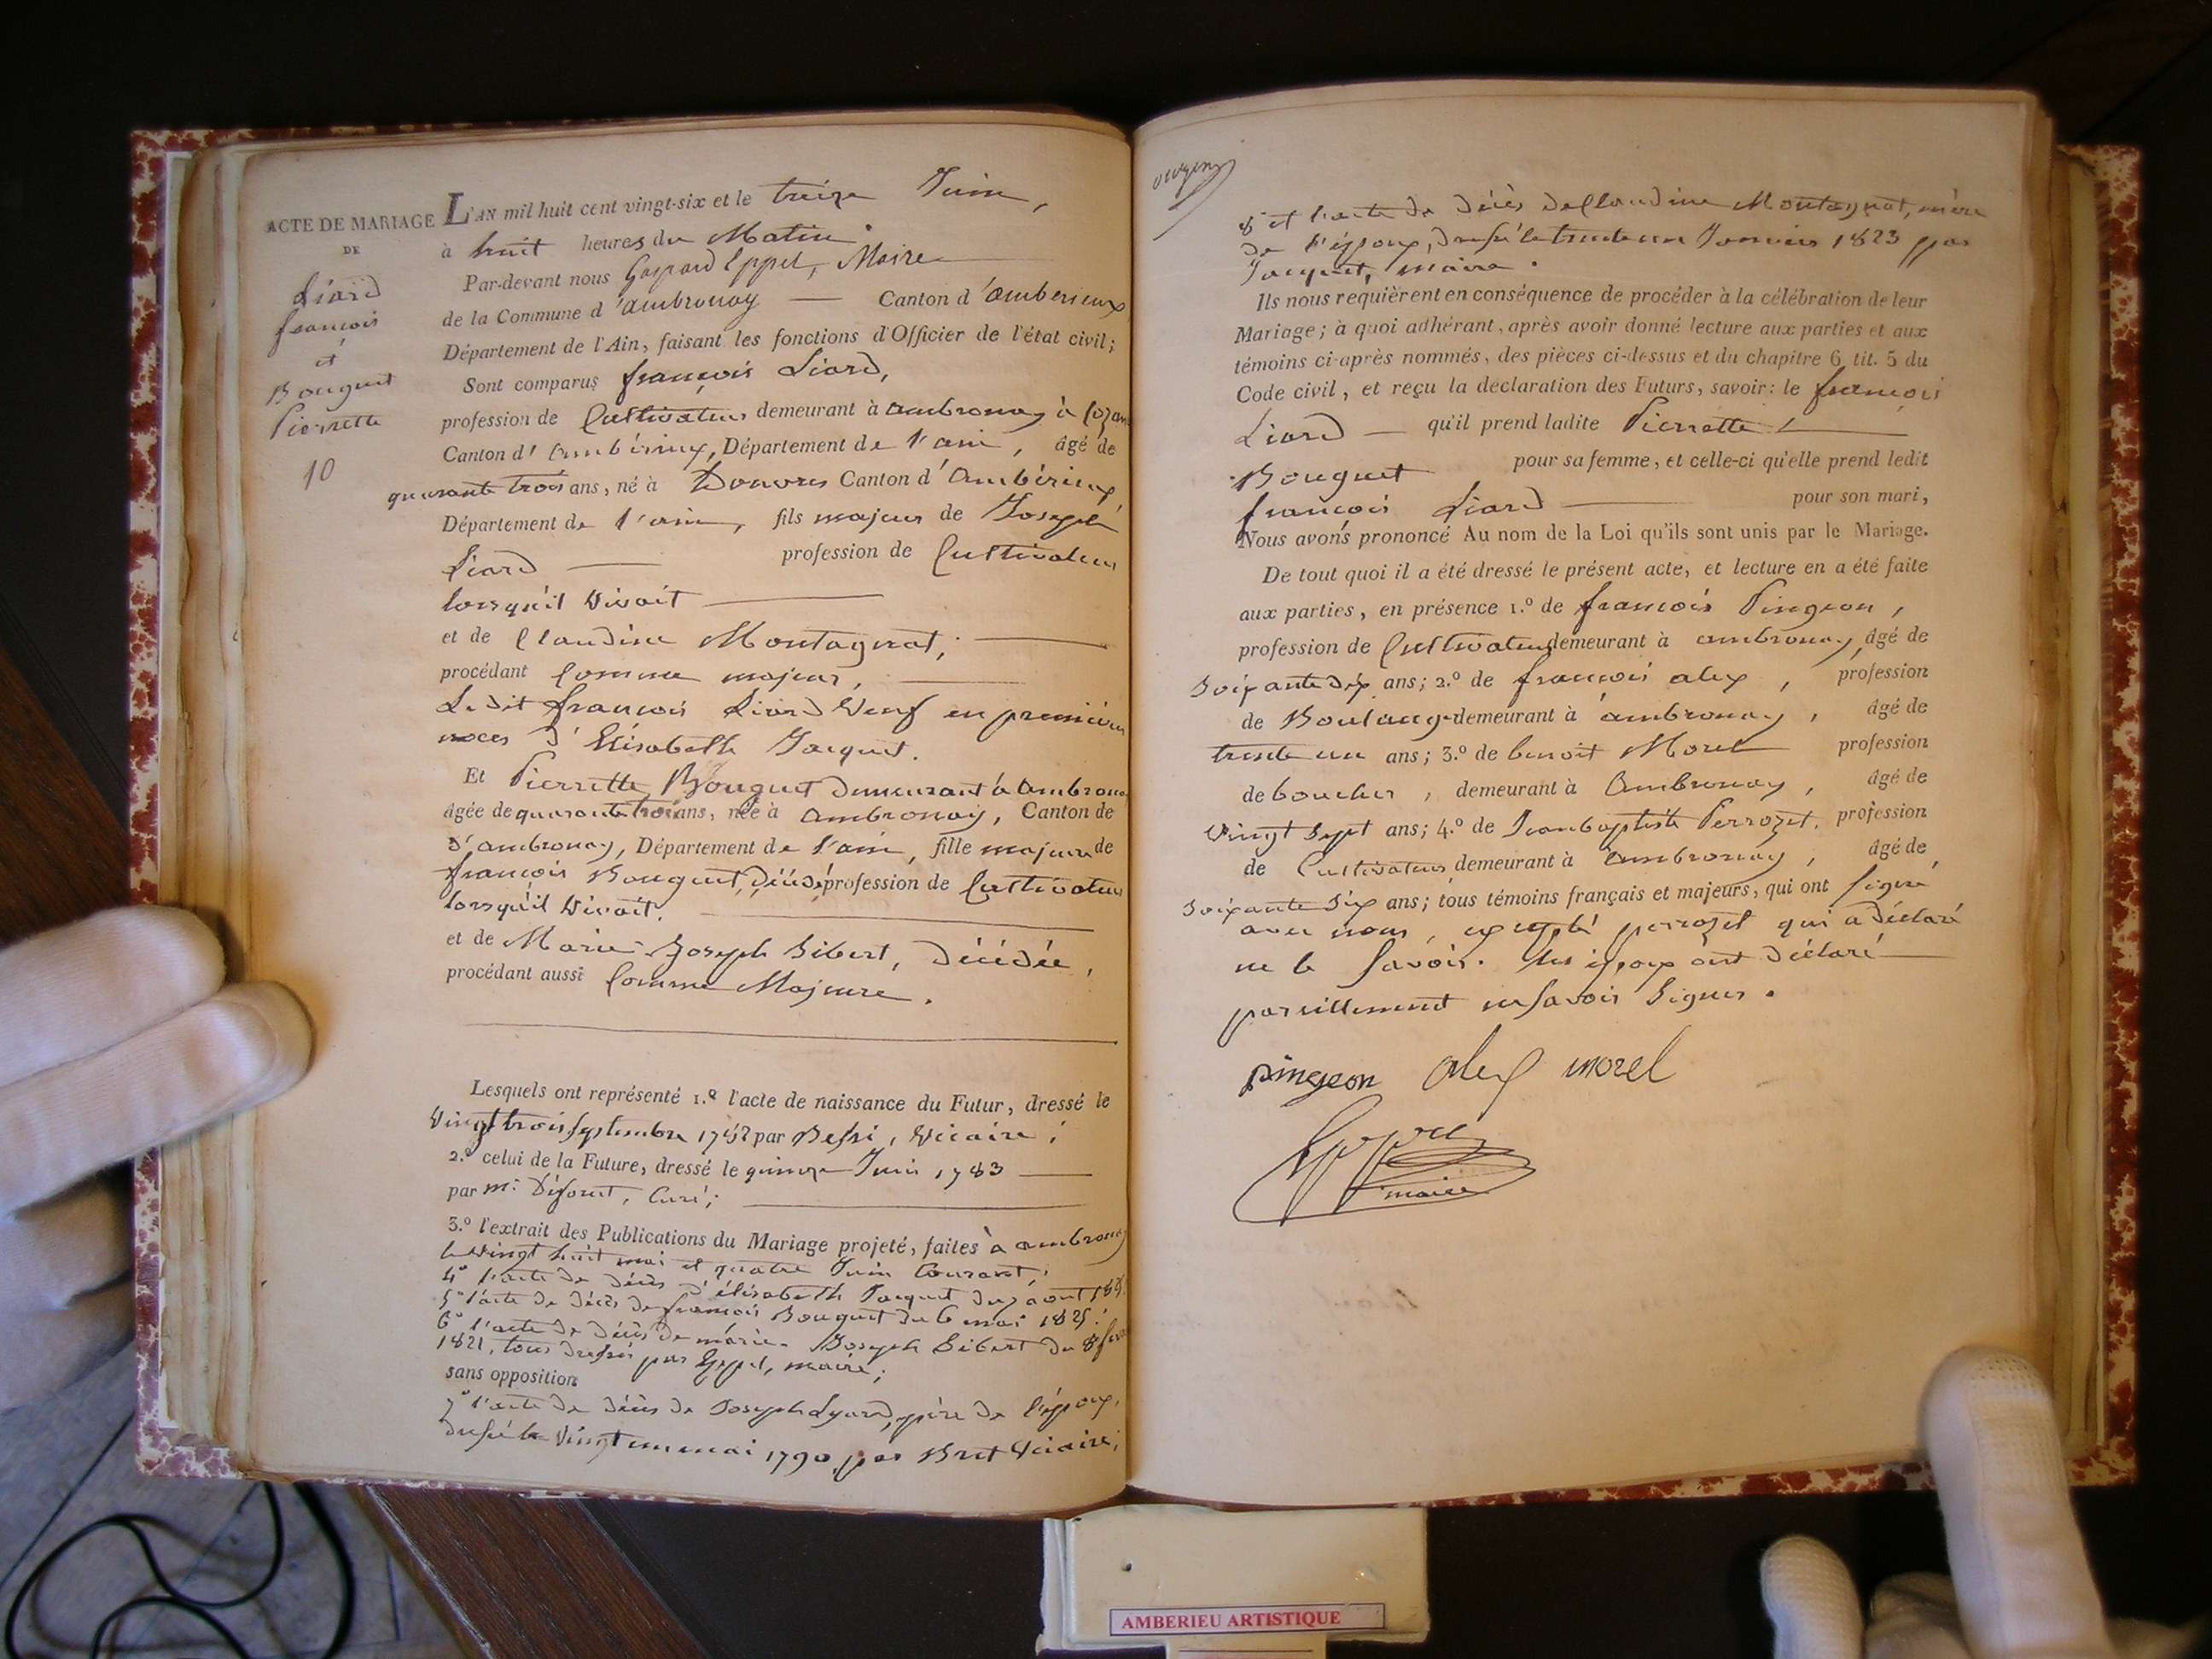 ACTE DE MARIAGE
DE
Liard
françois
et
Bouguet
Pierrette
10
L'AN mil huit cent vingt-six et le treize Juin,
à huit heures du Matin.
Par-devant nous Gaspard Eppel, Maire
de la Commune d'ambronay Canton d'ambérieux
Département de l'Ain, faisant les fonctions d'Officier de l'état civil;
Sont comparus françois Liard,
profession de Cultivateur demeurant à ambronay à
Canton d'ambérieux, Département de l'ain, âgé de
quarante trois ans, né à Douvres Canton d'ambérieux
Département de l'ain, fils majeur de Joseph
Liard profession de Cultivateur
lorsqu'il vivait
et de Claudine Montagnat;
procédant comme majeur,
Ledit françois Liard veuf en premières
noces d'Elisabeth Jacquet.
Et Pierrette Bouguet demeurant à ambronay
âgée de quarante trois ans, née à ambronay, Canton de
d'ambronay, Département de l'ain, fille majeure de
françois Bouguet, décédé, profession de Cultivateur
lorsqu'il vivait.
et de Marie Joseph Sibert, décédée,
procédant aussi comme Majeure.
Lesquels ont représenté 1.º l'acte de naissance du Futur, dressé le
vingt trois septembre par Bessi, vicaire;
2.º celui de la Future, dressé le quinze Juin 1783
par mr. Curé;
3.º l'extrait des Publications du Mariage projeté, faites à ambronay
le vingt huit mai et quatre Juin courant;
4º l'acte de décès d'élisabeth Jacquet du 7 aout
5º l'acte de décès de françois Bouguet du 6 mai 1825;
6º l'acte de décès de marie Joseph Sibert du 8
1821, tous dressés par Eppel, maire;
sans opposition
7º l'acte de décès de Joseph Lyard, père de l'époux,
dressé le vingt un mai 1790 par Bret vicaire;
8º et l'acte de décès de Claudine Montagnat, mère
de l'époux, dressé le trente un Janvier 1823 par
Jacquet, maire.
Ils nous requièrent en conséquence de procéder à la célébration de leur
Mariage; à quoi adhérant, après avoir donné lecture aux parties et aux
témoins ci-après nommés, des pièces ci-dessus et du chapitre 6, tit. 5 du
Code civil, et reçu la déclaration des Futurs, savoir: le françois
Liard qu'il prend ladite Pierrette
Bouguet pour sa femme, et celle-ci qu'elle prend ledit
françois Liard pour son mari,
Nous avons prononcé Au nom de la Loi qu'ils sont unis par le Mariage.
De tout quoi il a été dressé le présent acte, et lecture en a été faite
aux parties, en présence 1.º de françois Pingeon,
profession de Cultivateur demeurant à ambronay, âgé de
soixante dix ans; 2.º de françois alex, profession
de Boulanger demeurant à ambronay, âgé de
trente un ans; 3.º de benoit Morel profession
de boucher, demeurant à ambronay, âgé de
vingt sept ans; 4.º de Jean baptiste Perrozet, profession
de Cultivateur demeurant à ambronay, âgé de
soixante six ans; tous témoins français et majeurs, qui ont signé
avec nous, excepté perrozet qui a déclaré
ne le savoir. les époux ont déclaré
pareillement ne savoir signer.
pingeon alex morel
Eppel
maire
AMBERIEU ARTISTIQUE